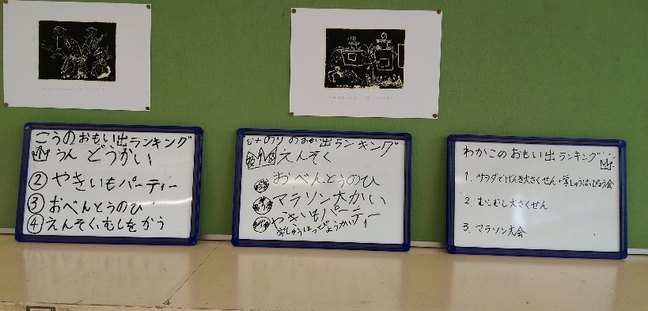 こうのおもい出ランキング
うんどうかい
② やきいもパーティー
③ おべんとうのひ
④ えんそく、むしをかう
のおもい出ランキング
えんそく
おべんとうのひ
マラソン大かい
やきいもパーティー
がくしゅうはっぴょうかい
わかこのおもい出ランキング
1. サラダでげんき大さくせん・学しゅうはっぴょう会
2. むしむし大さくせん
3. マラソン大会